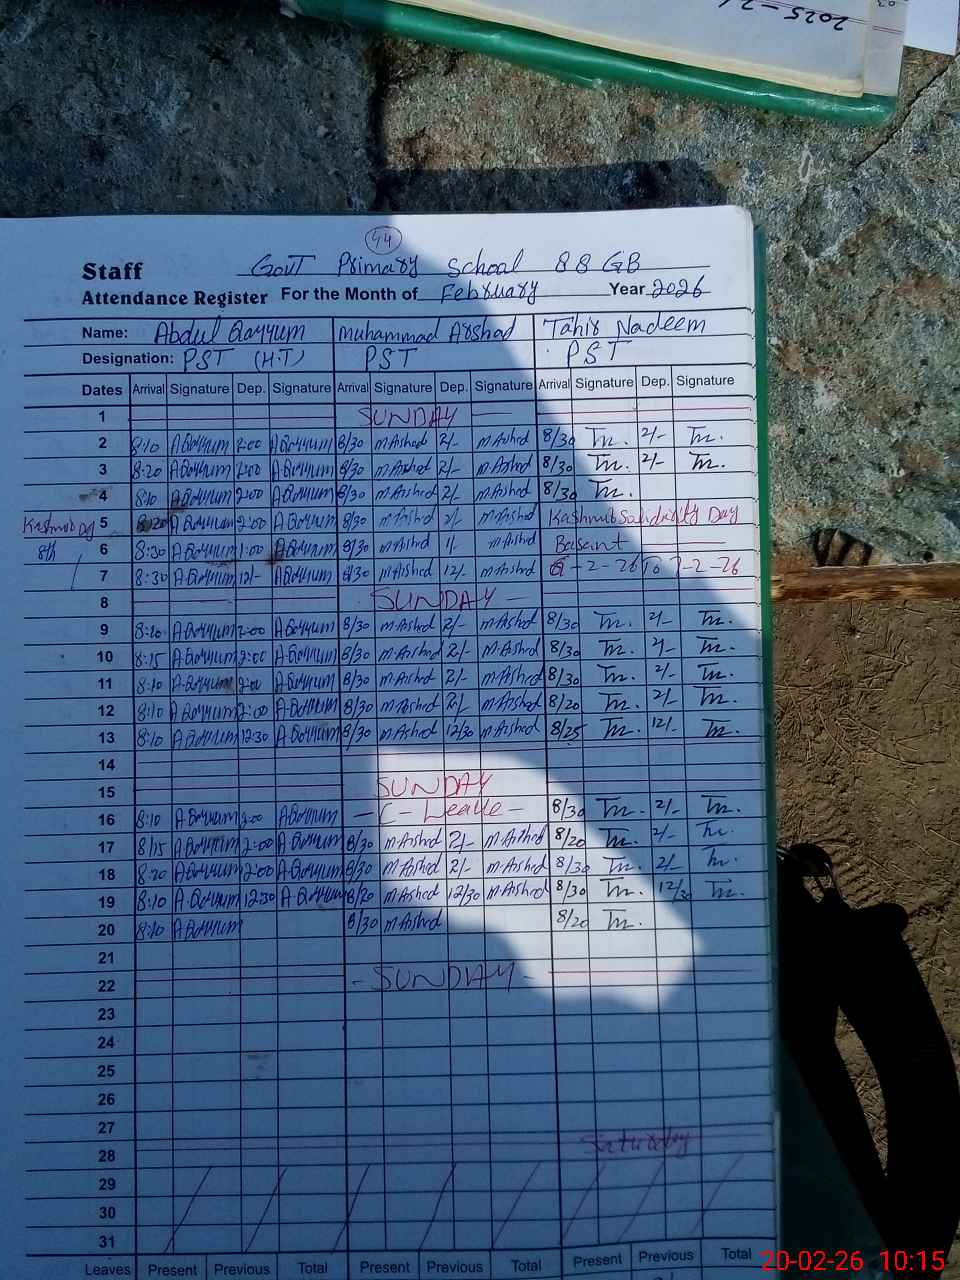 2025-2
44
Staff Govt Primary School 88 GB
Attendance Register For the Month of February Year 2026
Name: Abdul Qayyum Muhammad Arshad Tahir Nadeem
Designation: PST (H.T) PST PST
Dates Arrival Signature Dep. Signature Arrival Signature Dep. Signature Arrival Signature Dep. Signature
1 SUNDAY
2 8:10 A Qayyum 2:00 A Qayyum 8/30 mArshad 2/- mArshad 8/30 Tn. 2/- Tn.
3 8:20 A Qayyum 2:00 A Qayyum 8/30 mArshad 2/- mArshad 8/30 Tn. 2/- Tn.
4 8:10 A Qayyum 2:00 A Qayyum 8/30 mArshad 2/- mArshad 8/30 Tn.
Kashmir Day 5 8:20 A Qayyum 2:00 A Qayyum 8/30 mArshad 2/- mArshad Kashmir Solidarity Day
8th 6 8:30 A Qayyum 1:00 A Qayyum 8/30 mArshad 1/- mArshad Basant
7 8:30 A Qayyum 12/- A Qayyum 8/30 mArshad 12/- mArshad 6-2-26 To 7-2-26
8 SUNDAY
9 8:10 A Qayyum 2:00 A Qayyum 8/30 mArshad 2/- mArshad 8/30 Tn. 2/- Tn.
10 8:15 A Qayyum 2:00 A Qayyum 8/30 mArshad 2/- mArshad 8/30 Tn. 2/- Tn.
11 8:10 A Qayyum 2:00 A Qayyum 8/30 mArshad 2/- mArshad 8/30 Tn. 2/- Tn.
12 8:10 A Qayyum 2:00 A Qayyum 8/30 mArshad 2/- mArshad 8/20 Tn. 2/- Tn.
13 8:10 A Qayyum 12:30 A Qayyum 8/30 mArshad 12/30 mArshad 8/25 Tn. 12/- Tn.
14
15 SUNDAY
16 8:10 A Qayyum 2:00 A Qayyum - C- Leave - 8/30 Tn. 2/- Tn.
17 8/15 A Qayyum 2:00 A Qayyum 8/30 mArshad 2/- mArshad 8/20 Tn. 2/- Tn.
18 8:20 A Qayyum 2:00 A Qayyum 8/30 mArshad 2/- mArshad 8/30 Tn. 2/- Tn.
19 8:10 A Qayyum 12:30 A Qayyum 8/20 mArshad 12/30 mArshad 8/30 Tn. 12/30 Tn.
20 8:10 A Qayyum 8/30 mArshad 8/20 Tn.
21
22 - SUNDAY -
23
24
25
26
27
28 Saturday
29
30
31
Leaves Present Previous Total Present Previous Total Present Previous Total
20-02-26 10:15